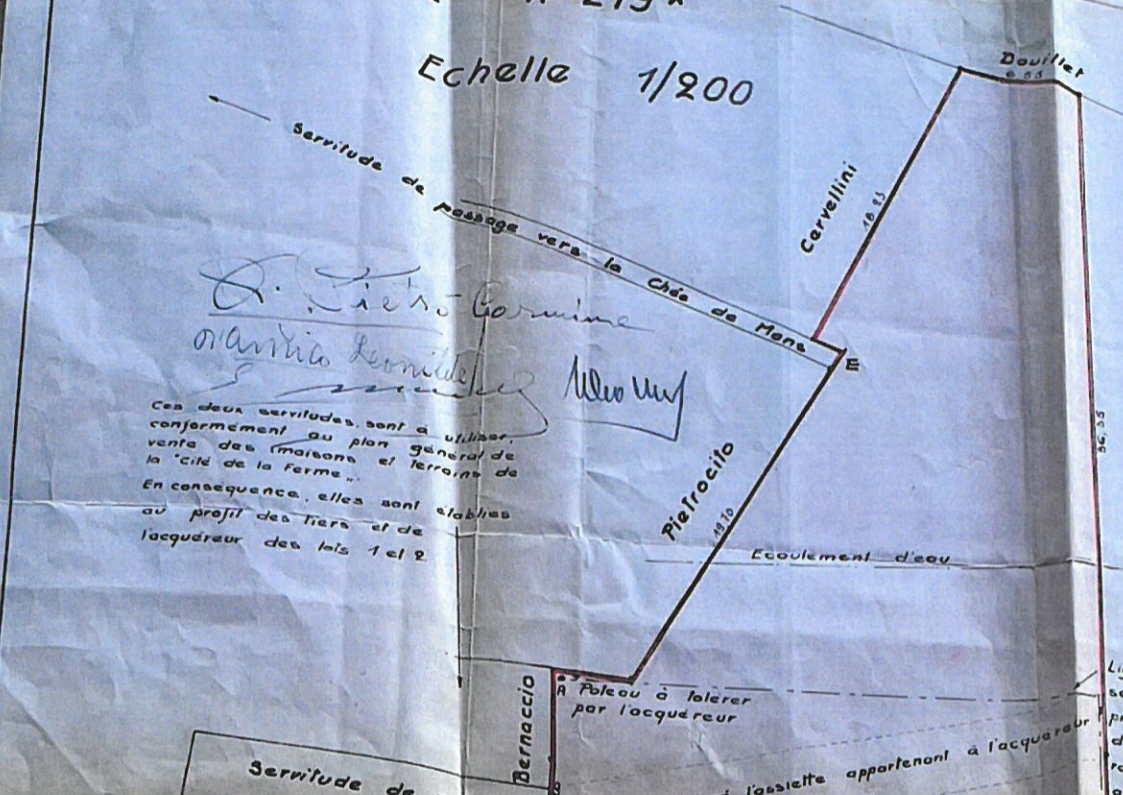 Echelle 1/200
Douillet
Servitude de passage vers la Chée de Mons
Cervellini
18,95
E
Ces deux servitudes, sont à utiliser,
conformément au plan général de
vente des maisons et terrains de
la "Cité de la Ferme".
En conséquence, elles sont établies
au profit des tiers et de
l'acquéreur des lots 1 et 2
Pietrocilo
19,70
36,55
Ecoulement d'eau
A Poteau à tolérer
par l'acquéreur
Bernaccio
Servitude de
l'assiette appartenant à l'acquéreur